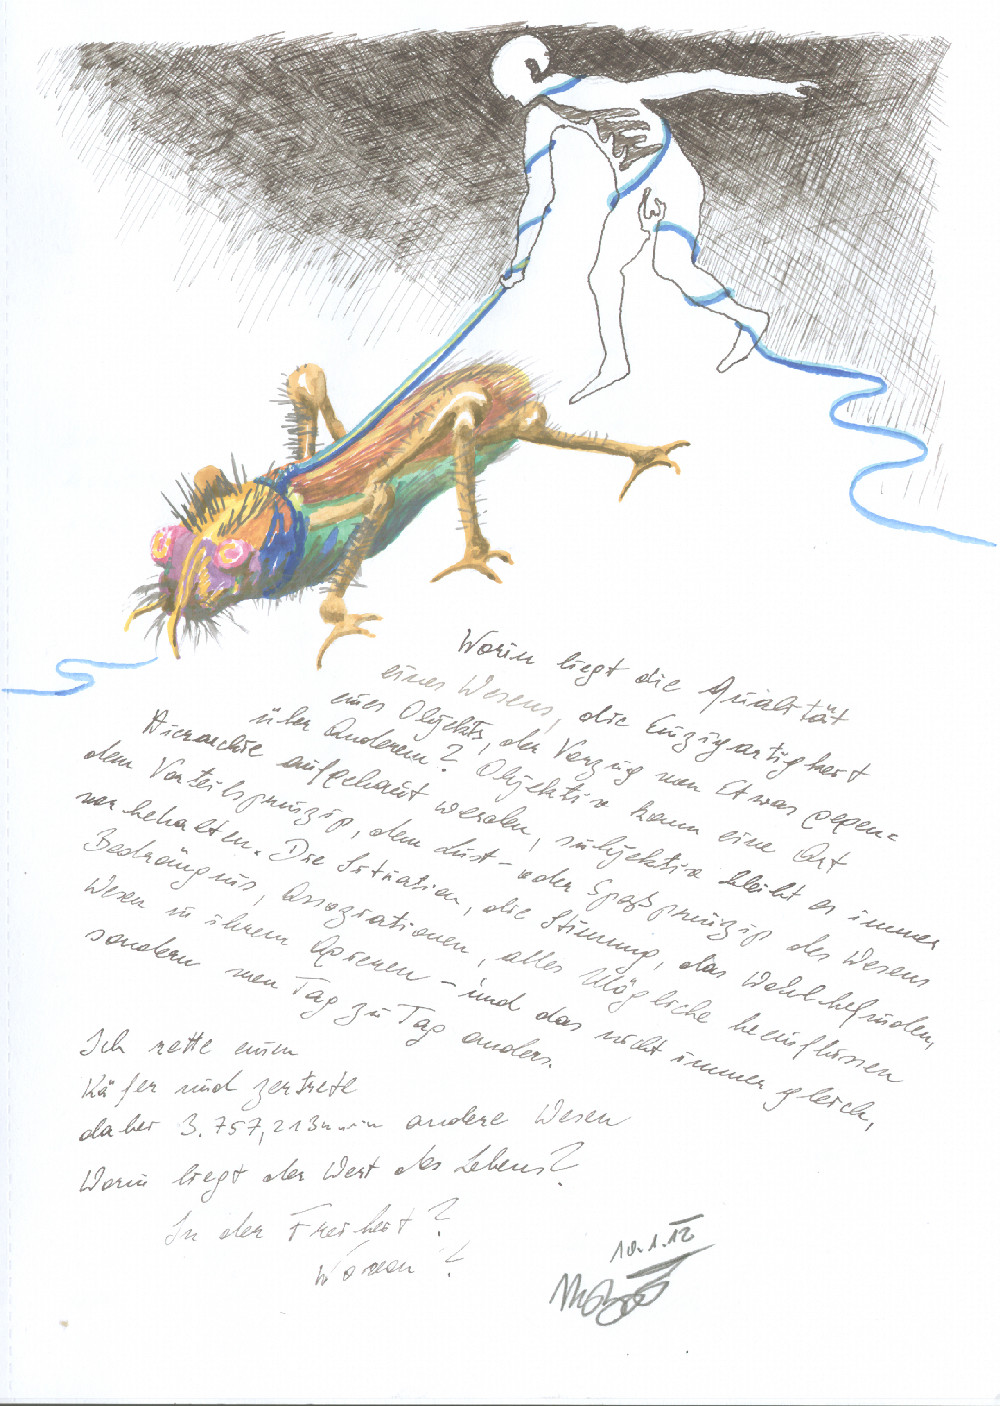 Worin liegt die Qualität
eines Wesens, die Einzigartigkeit
eines Objekts, der Vorzug von Etwas gegen=
über Anderem? Objektiv kann eine Art
Hierarchie aufgebaut werden, subjektiv bleibt es immer
dem Vorteilsprinzip, dem Lust- oder Spaßprinzip des Wesens
vorbehalten. Die Situation, die Stimmung, das Wohlbefinden,
Bedrängnis, Assoziationen, alles Mögliche beeinflussen
Wesen in ihrem Agieren - und das nicht immer gleich,
sondern von Tag zu Tag anders.
Ich rette einen
Käfer und zertrete
dabei 3.757,213 andere Wesen
Worin liegt der Wert des Lebens?
In der Freiheit?
Wovon?
10.1.12